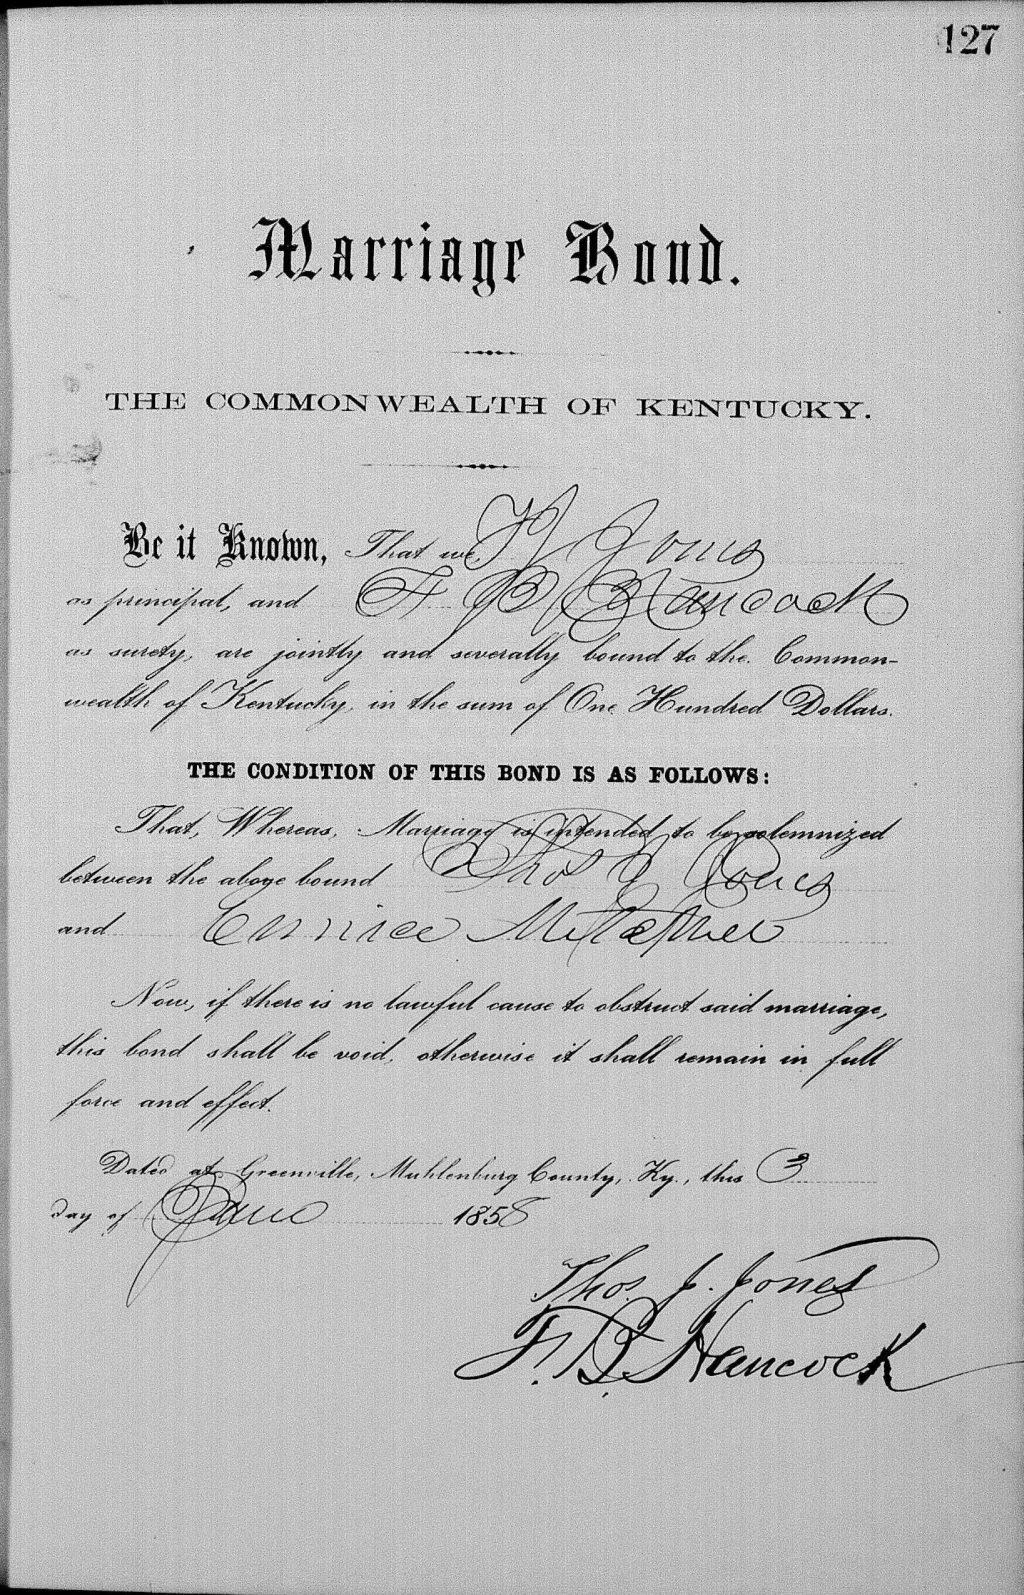 127
Marriage Bond.
THE COMMONWEALTH OF KENTUCKY.
Be it Known, That we, T J Jones
as principal, and F B Hancock
as surety, are jointly and severally bound to the Common-
wealth of Kentucky, in the sum of One Hundred Dollars.
THE CONDITION OF THIS BOND IS AS FOLLOWS:
That, Whereas, Marriage is intended to be solemnized
between the above bound Thos J Jones
and
Now, if there is no lawful cause to obstruct said marriage,
this bond shall be void, otherwise it shall remain in full
force and effect.
Dated at Greenville, Muhlenburg County, Ky., this 3
day of June 1858
Thos. J. Jones
F. B. Hancock